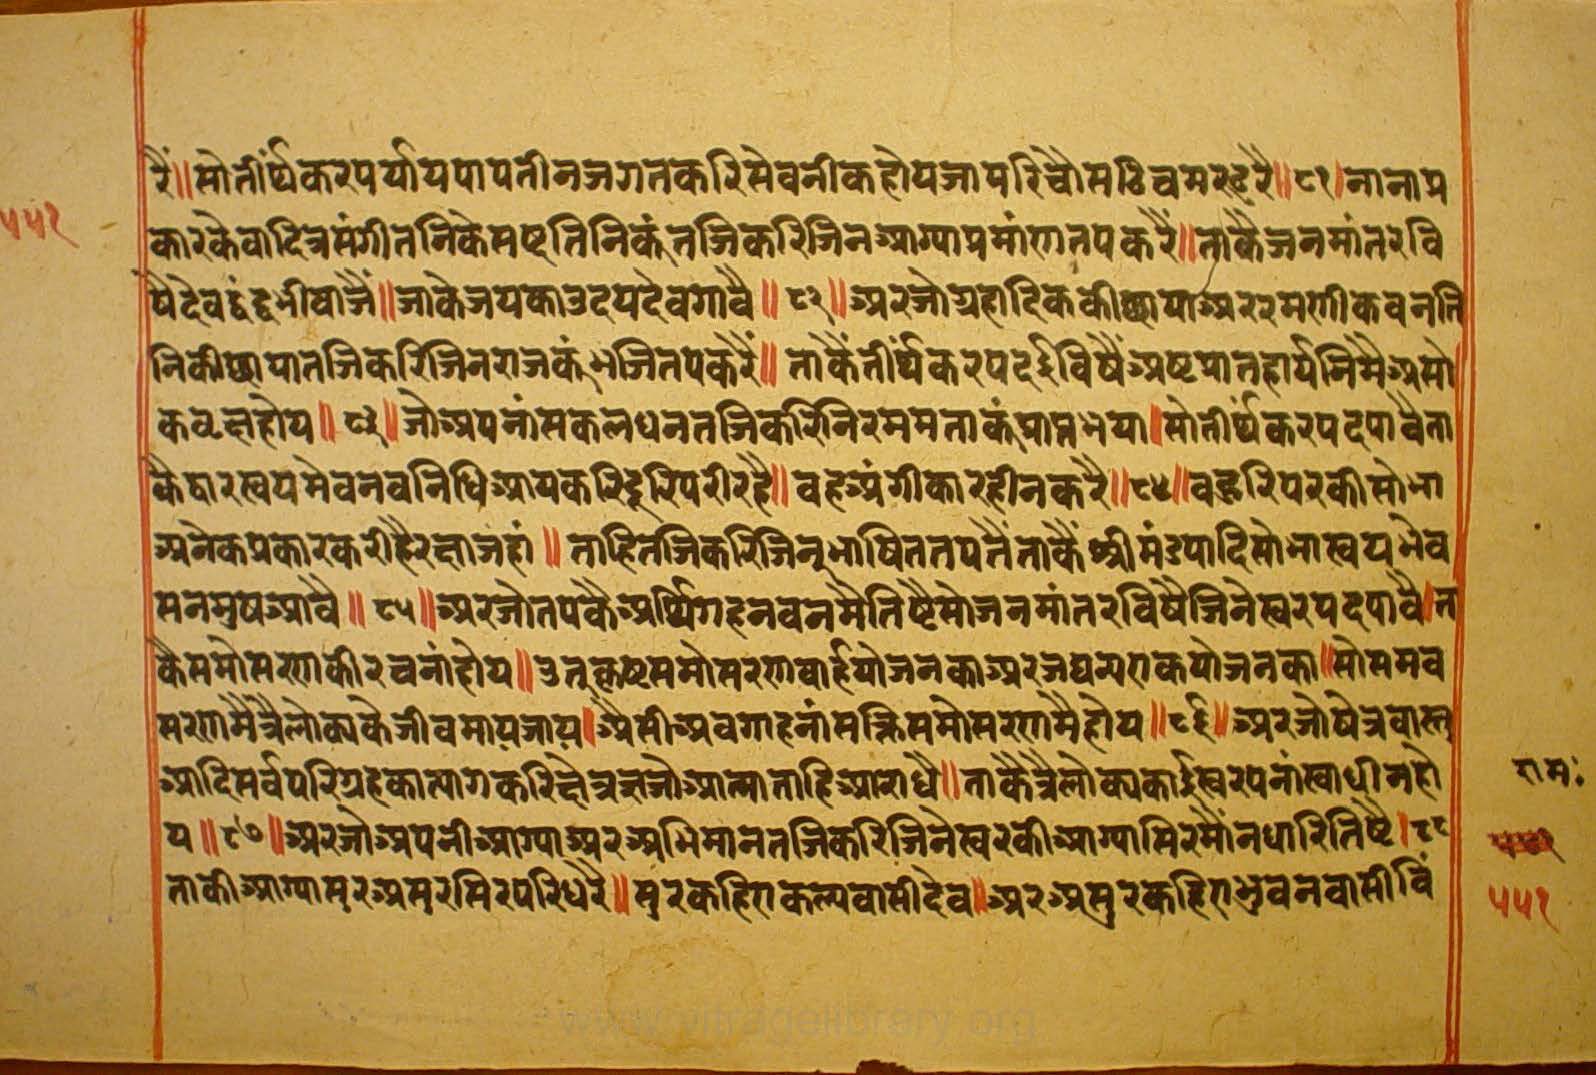 ५५१
रैं॥सोतीर्थंकरपर्यायपायतीनजगतकरिसेवनीकहोयजापरिचौसठिचमरढुरै॥८१।नानाप्र
कारकेवादित्रसंगीततिनिकेसष्टतिनिकूंतजिकरिजिनआग्याप्रमांणतपकरैं॥ताकैजनमांतरवि
षैदेवदुंदुभीबाजैं॥जाकेजयकाउदयदेवगावै॥८२॥अरजोग्रहादिककीछायाअररमणीकवनति
निकीछायातजिकरिजिनराजकूंभजितपकरैं॥ताकैतीर्थंकरपदईविषैंअष्टप्रातहार्यनिमैअसो
कवृछहोय॥८३॥जोअपनांसकलधनतजिकरिनिरममताकूंप्राप्तभया।सोतीर्थंकरपदपावैता
कैद्वारस्वयमेवनवनिधिआयकरिदूरिपरीरहै॥वहअंगीकारहीनकरै॥८४॥बहुरिघरकीसोभा
अनेकप्रकारकरीहैरछाजहां॥ताहितजिकरिजिनूभाषिततपतैंताकैंश्रीमंडपादिसोभास्वयमेव
सनमुषआवै॥८५॥अरजोतपकैअर्थिगहनवनमैतिष्टैसोजनमांतरविषैजिनेस्वरपदपावै।त
कैसमोसरणकीरचनांहोय॥उतुकृष्टसमोसरणबार्हयोजनकाअरजघन्यएकयोजनका॥सोसमव
सरणमैत्रैलोक्यकेजीवमायजाय।अैसीअवगाहनांसक्तिसमोसरणमैहोय॥८६॥अरजोषेत्रवास्तु
आदिसर्वपरिग्रहकात्यागकरिछेत्रज्ञजोआत्माताहिआराधै॥ताकैत्रैलोक्यकाईस्वरपनांस्वाधीनहो
य॥८७॥अरजोअपनीआग्याअरअभिमानतजिकरिजिनेस्वरकीआग्यासिरमौंनधारितिष्टै।८८
ताकीआग्यासुरअसुरसिरपरिधरै॥सुरकहिएकल्पवासीदेव॥अरअसुरकहिएभुवनवासीविं
रामः
५५१
www.vitragelibrary.org